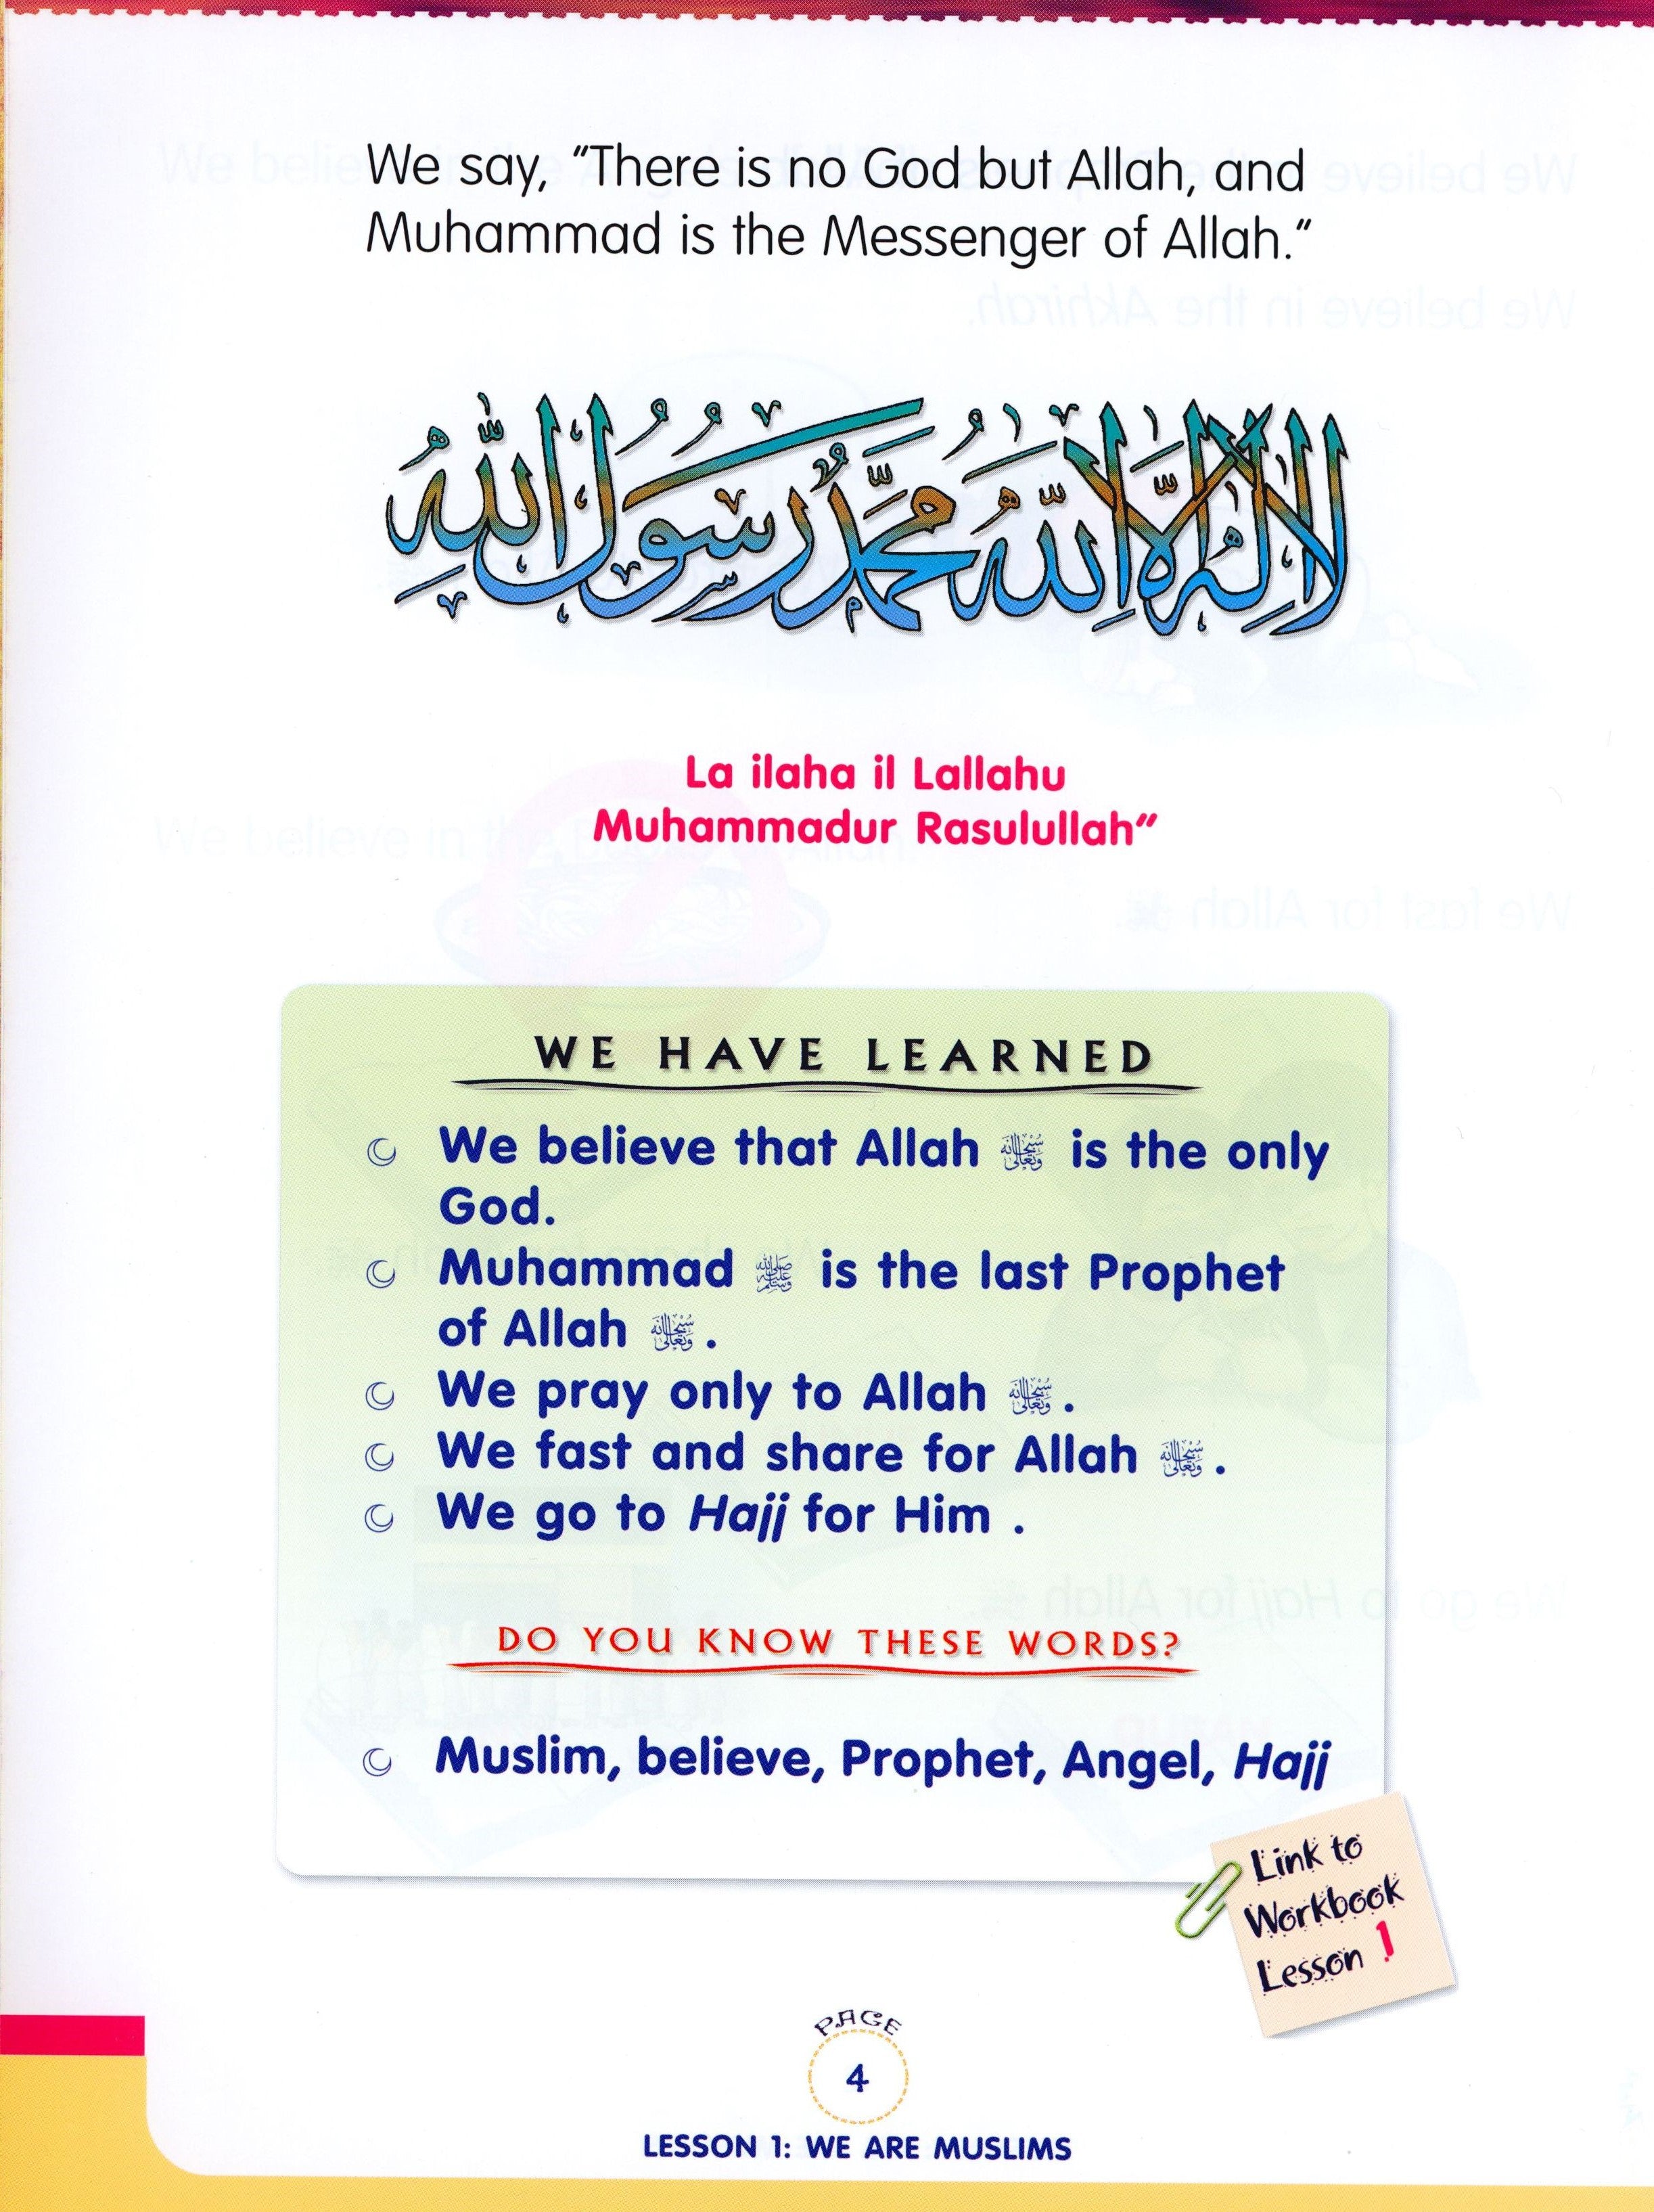 We say, “There is no God but Allah, and
Muhammad is the Messenger of Allah.”
لَا إِلٰهَ إِلَّا اللهُ مُحَمَّدٌ رَسُولُ اللهِ
La ilaha il Lallahu
Muhammadur Rasulullah”
WE HAVE LEARNED
We believe that Allah ﷻ is the only
God.
Muhammad ﷺ is the last Prophet
of Allah سبحانه وتعالى.
We pray only to Allah سبحانه وتعالى.
We fast and share for Allah سبحانه وتعالى.
We go to Hajj for Him .
DO YOU KNOW THESE WORDS?
Muslim, believe, Prophet, Angel, Hajj
Link to
Workbook
Lesson 1
PAGE
4
LESSON 1: WE ARE MUSLIMS